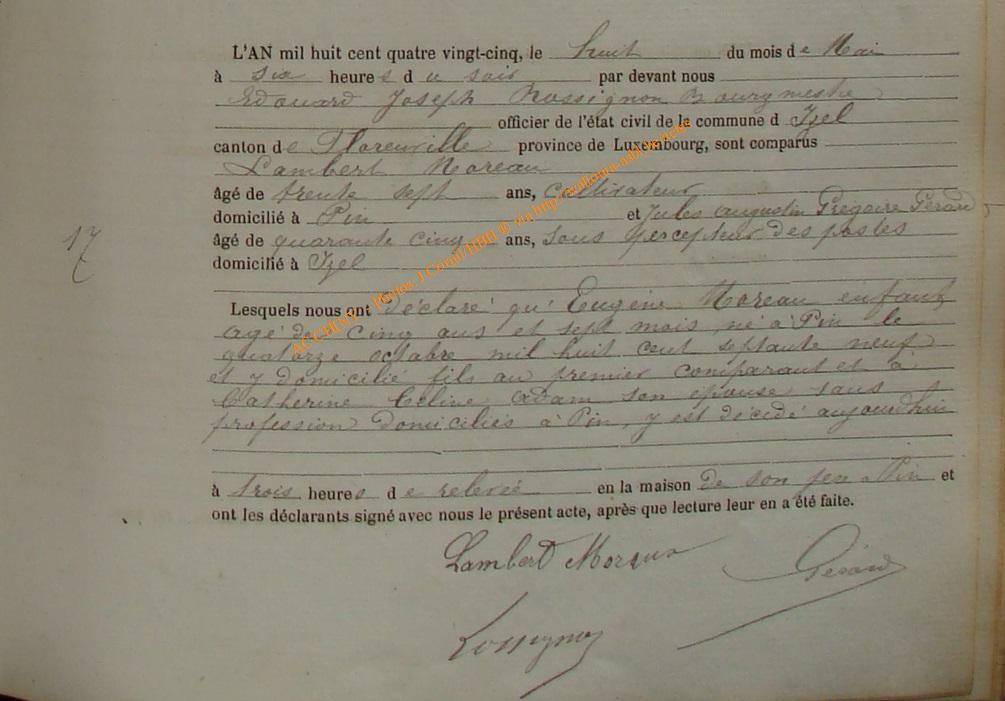 L'AN mil huit cent quatre vingt-cinq, le huit du mois de Mai
à six heures du soir par devant nous
Edouard Joseph Rossignon Bourgmestre
officier de l'état civil de la commune d Izel
canton de Florenville province de Luxembourg, sont comparus
Lambert Moreau
âgé de trente sept ans, cultivateur
domicilié à Pin et Jules Augustin Grégoire Gérard
âgé de quarante cinq ans, sous percepteur des postes
domicilié à Izel
17
Lesquels nous ont déclaré qu'Eugène Moreau enfant
agé de cinq ans et sept mois, né à Pin le
quatorze octobre mil huit cent septante neuf
et y domicilié fils au premier comparant et à
Catherine Céline Adam son épouse sans
profession domiciliés à Pin, y est décédé aujourd'hui
à trois heures de relevée en la maison de son père à Pin et
ont les déclarants signé avec nous le présent acte, après que lecture leur en a été faite.
Lambert Moreau
Gérard
Rossignon